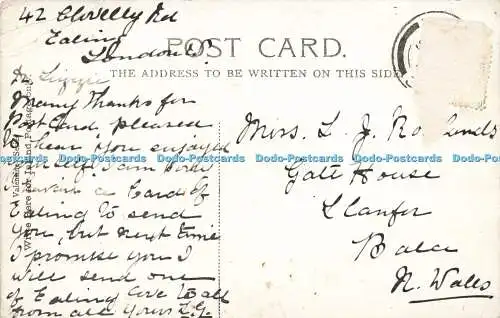 42 Clovelly Rd
Ealing
London W.
POST CARD.
THE ADDRESS TO BE WRITTEN ON THIS SIDE
Dr Lizzie
Many Thanks for
Post Card, pleased
to hear you enjoyed
yourself. I am sorry
a Card of
Ealing to send
you, but next time
I promise you I
will send one
of Ealing love to all
from all yours
Miss. L. J. Rowlands
Gate House
Llanfor
Bala
N. Wales
Dodo-Postcards Dodo-Postcards Dodo-Postcards Dodo-Postcards Dodo-Postcards Dodo-Postcards